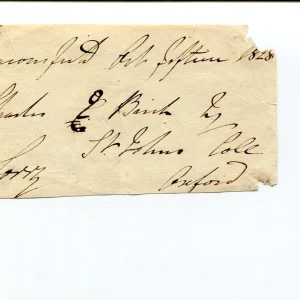 aconsfield Oct fifteen 1828
harles E Birch Esq
St Johns Coll
Oxford